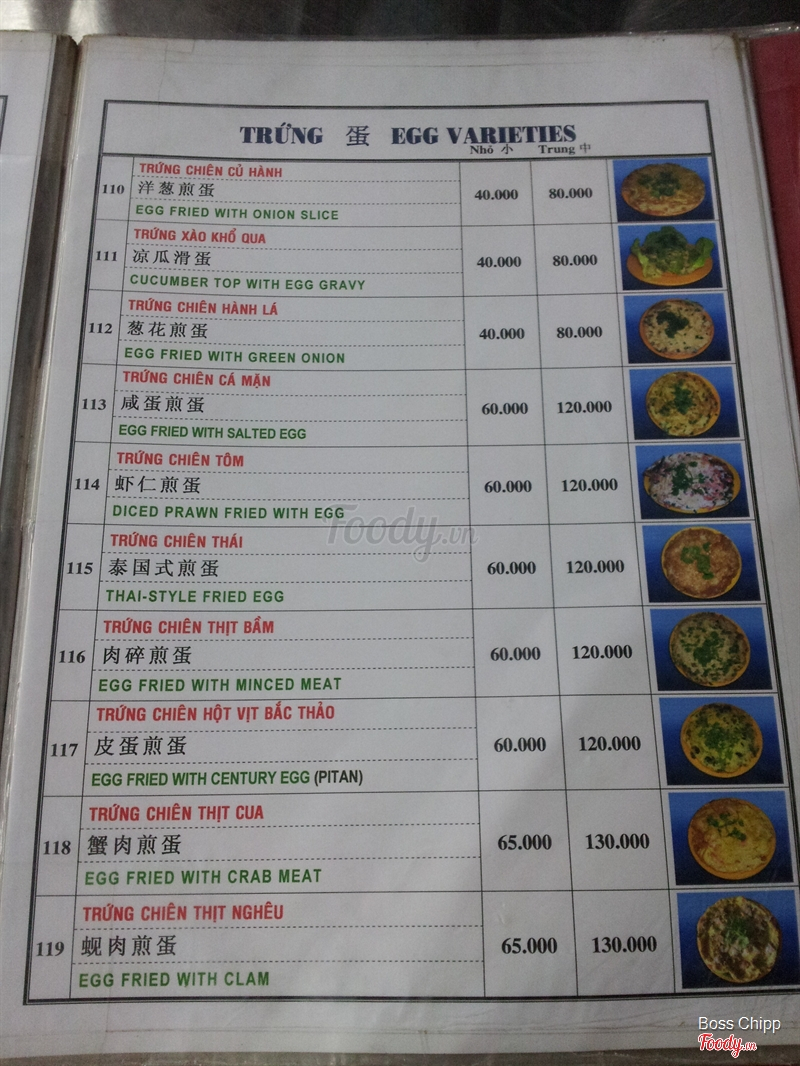 TRỨNG 蛋 EGG VARIETIES
Nhỏ 小 Trung 中
110 TRỨNG CHIÊN CỦ HÀNH
洋葱煎蛋
EGG FRIED WITH ONION SLICE
40.000 80.000
111 TRỨNG XÀO KHỔ QUA
凉瓜滑蛋
CUCUMBER TOP WITH EGG GRAVY
40.000 80.000
112 TRỨNG CHIÊN HÀNH LÁ
葱花煎蛋
EGG FRIED WITH GREEN ONION
40.000 80.000
113 TRỨNG CHIÊN CÁ MẶN
咸蛋煎蛋
EGG FRIED WITH SALTED EGG
60.000 120.000
114 TRỨNG CHIÊN TÔM
虾仁煎蛋
DICED PRAWN FRIED WITH EGG
60.000 120.000
115 TRỨNG CHIÊN THÁI
泰国式煎蛋
THAI-STYLE FRIED EGG
60.000 120.000
116 TRỨNG CHIÊN THỊT BẰM
肉碎煎蛋
EGG FRIED WITH MINCED MEAT
60.000 120.000
117 TRỨNG CHIÊN HỘT VỊT BẮC THẢO
皮蛋煎蛋
EGG FRIED WITH CENTURY EGG (PITAN)
60.000 120.000
118 TRỨNG CHIÊN THỊT CUA
蟹肉煎蛋
EGG FRIED WITH CRAB MEAT
65.000 130.000
119 TRỨNG CHIÊN THỊT NGHÊU
蚬肉煎蛋
EGG FRIED WITH CLAM
65.000 130.000
Foody.vn
Boss Chipp
Foody.vn